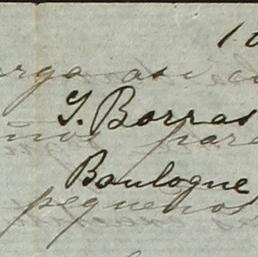 10
arga asi c
J. Borras
ños para
Boulogne
pequeños